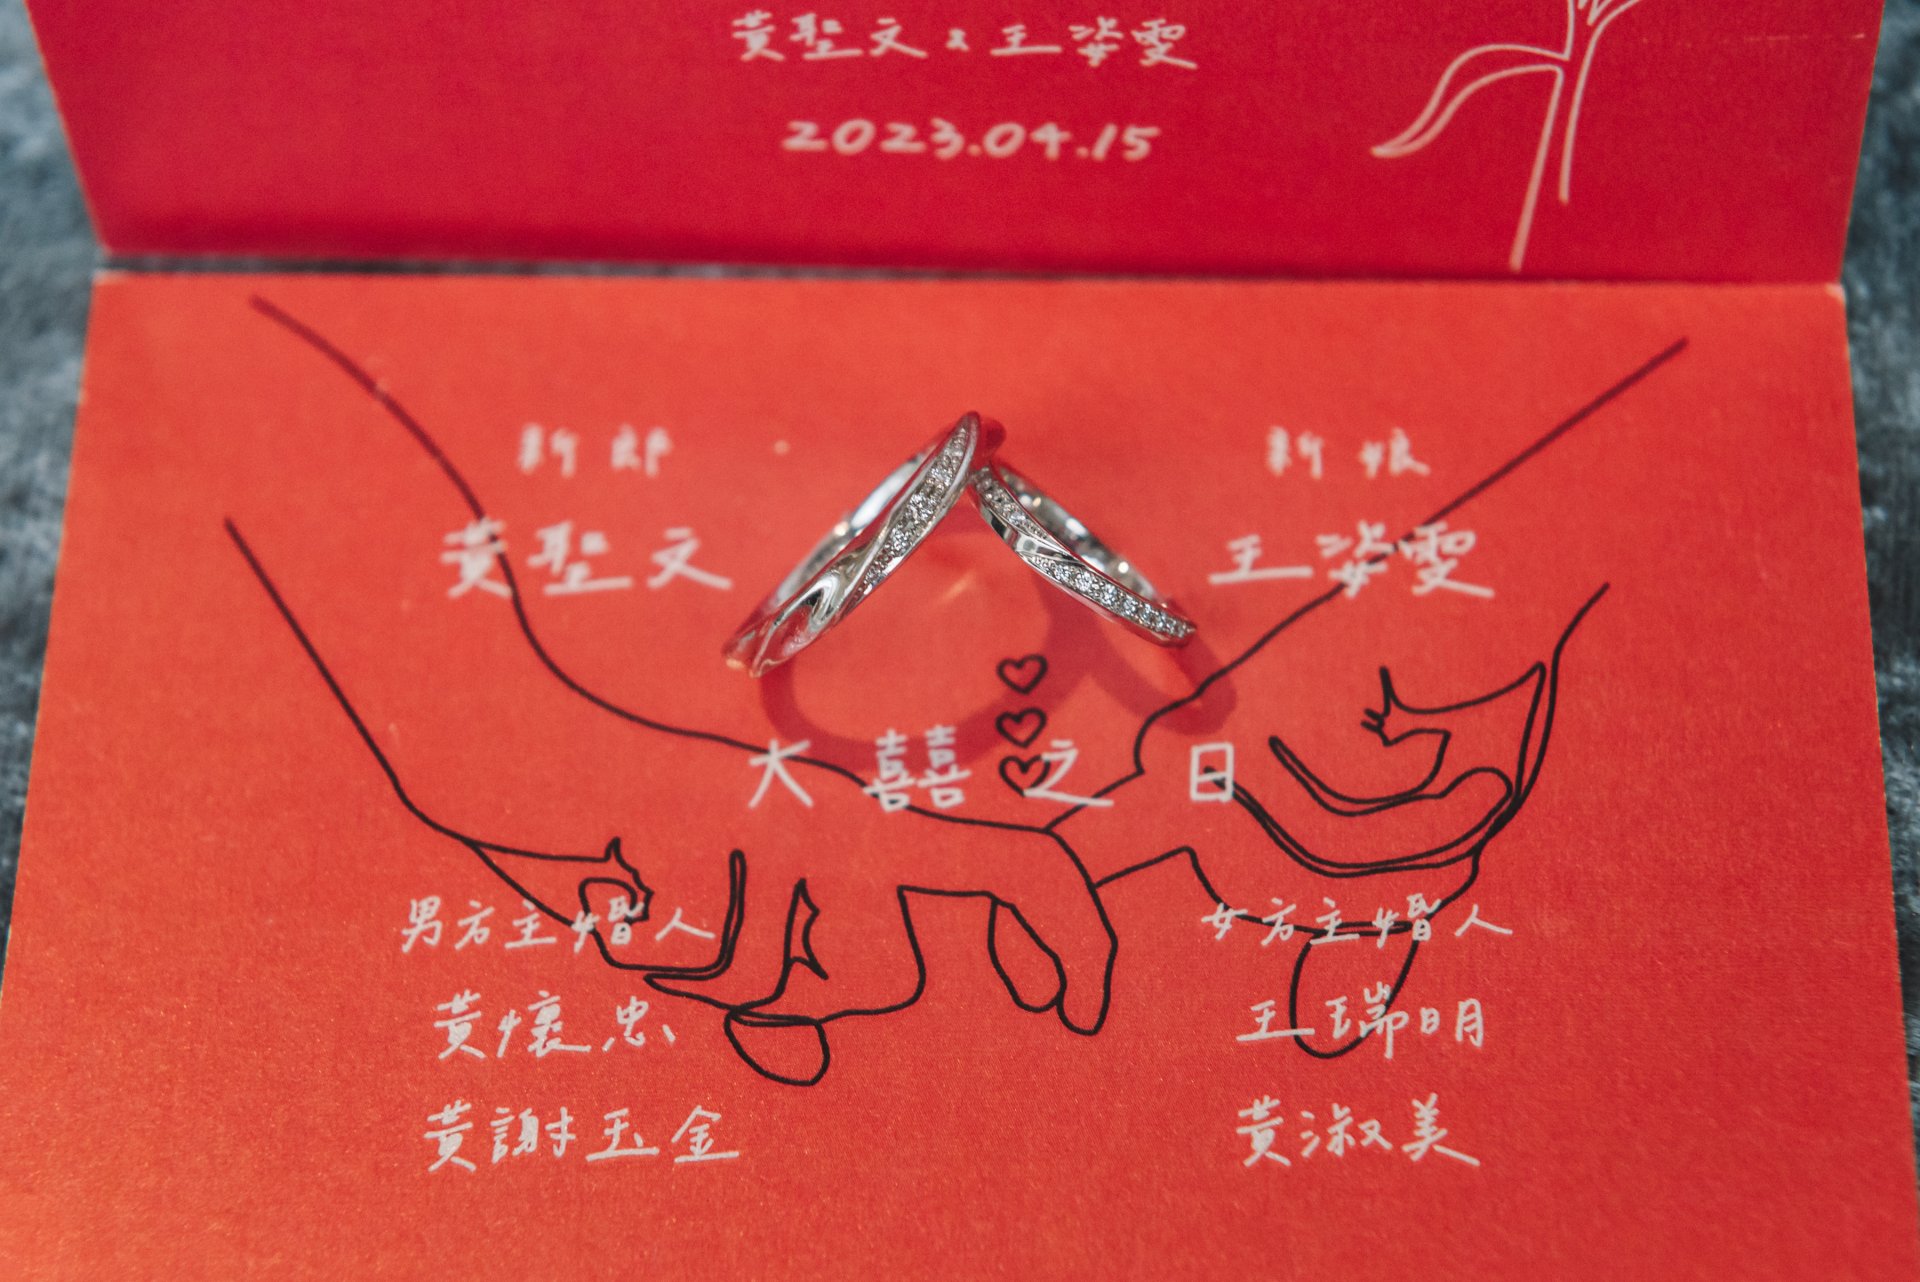 黃聖文 & 王姿雯
2023.04.15
新郎 新娘
黃聖文 王姿雯
大囍之日
男方主婚人 女方主婚人
黃懷忠 王瑞明
黃謝玉金 黃淑美